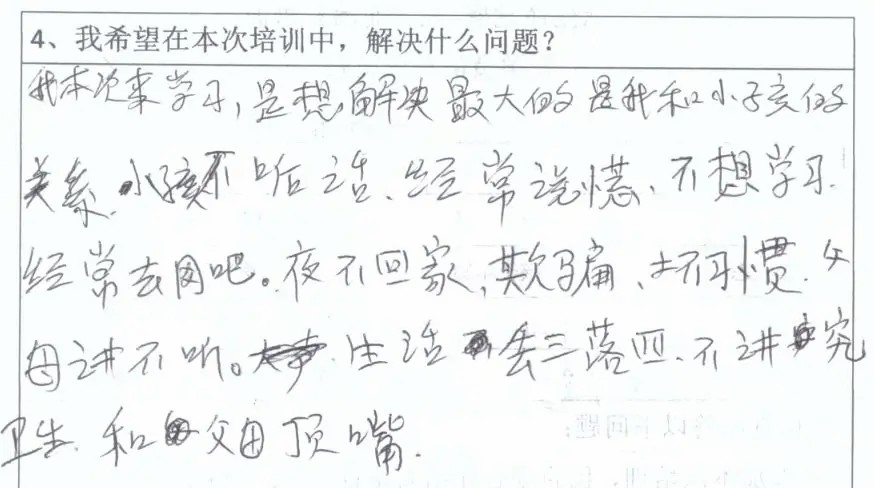 4、我希望在本次培训中，解决什么问题？
我本次来学习，是想解决最大的是我和小孩的
关系.小孩不听话、经常说慌、不想学习.
经常去网吧。夜不回家,欺骗、坏习惯.父
母讲不听。生活丢三落四、不讲究
卫生.和父母顶嘴.